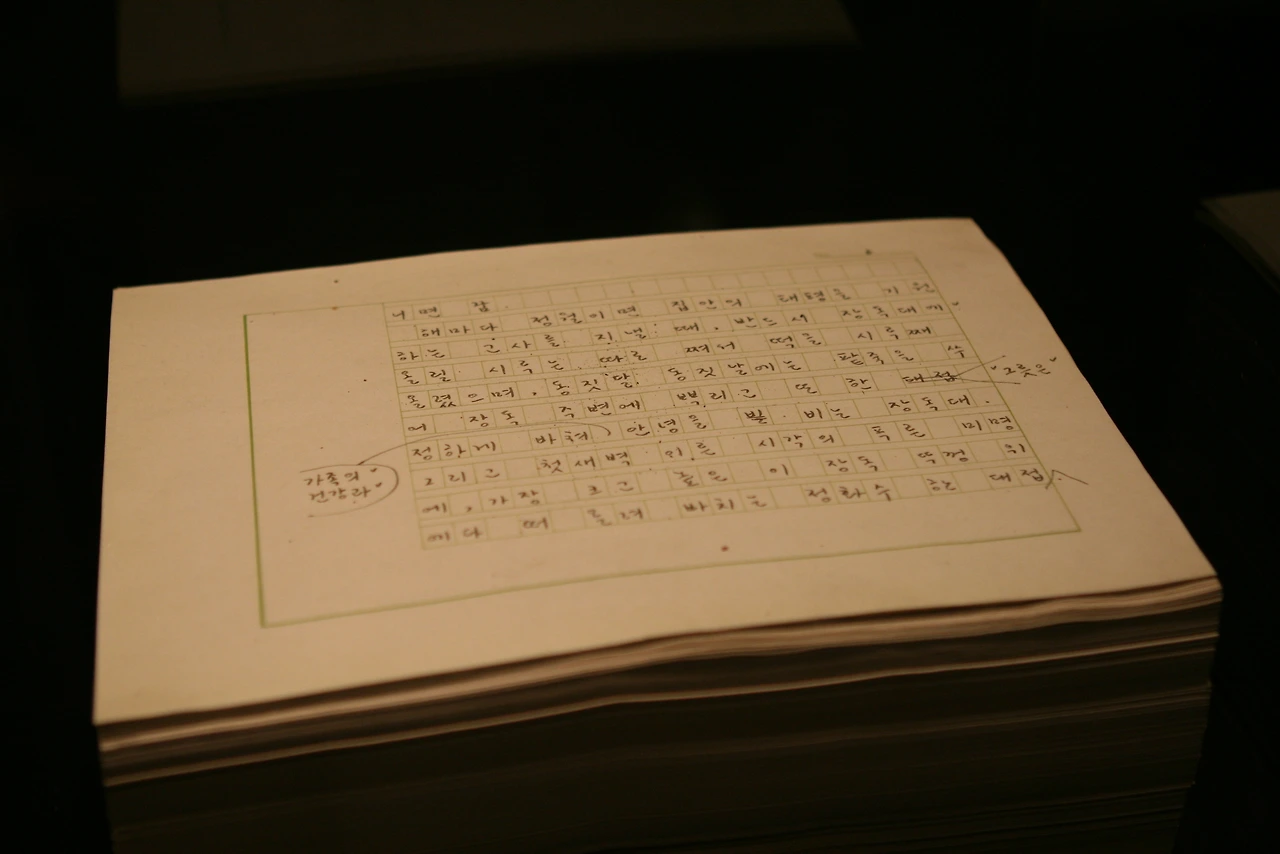 너면 참
해마다 정월이면 집안의 태평을 기원
하는 고사를 지낼 때, 반드시 장독대에
올릴 시루는 따로 쪄서 떡을 시루째
올렸으며, 동짓달 동짓날에는 팥죽을 쑤
어 장독 주변에 뿌리고 또 한 대접 "그릇을"
정하게 바쳐 안녕을 빌 비는 장독대.
그리고 첫새벽 인를 시각의 폭른 미명
"가족의
건강과"
에, 가장 크고 높은 이 장독 뚜껑 위
에다 떠 올려 바치는 정화수 한 대접